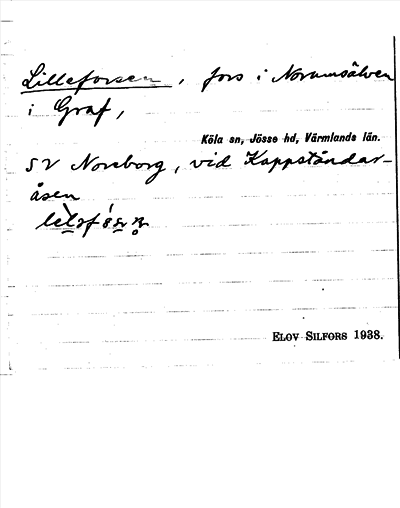 Lilleforsen, fors i Noramsälven
i Graf,
Köla sn, Jösse hd, Värmlands län.
SV Noreborg, vid Kappståndar-
åsen
ELOV SILFORS 1938.